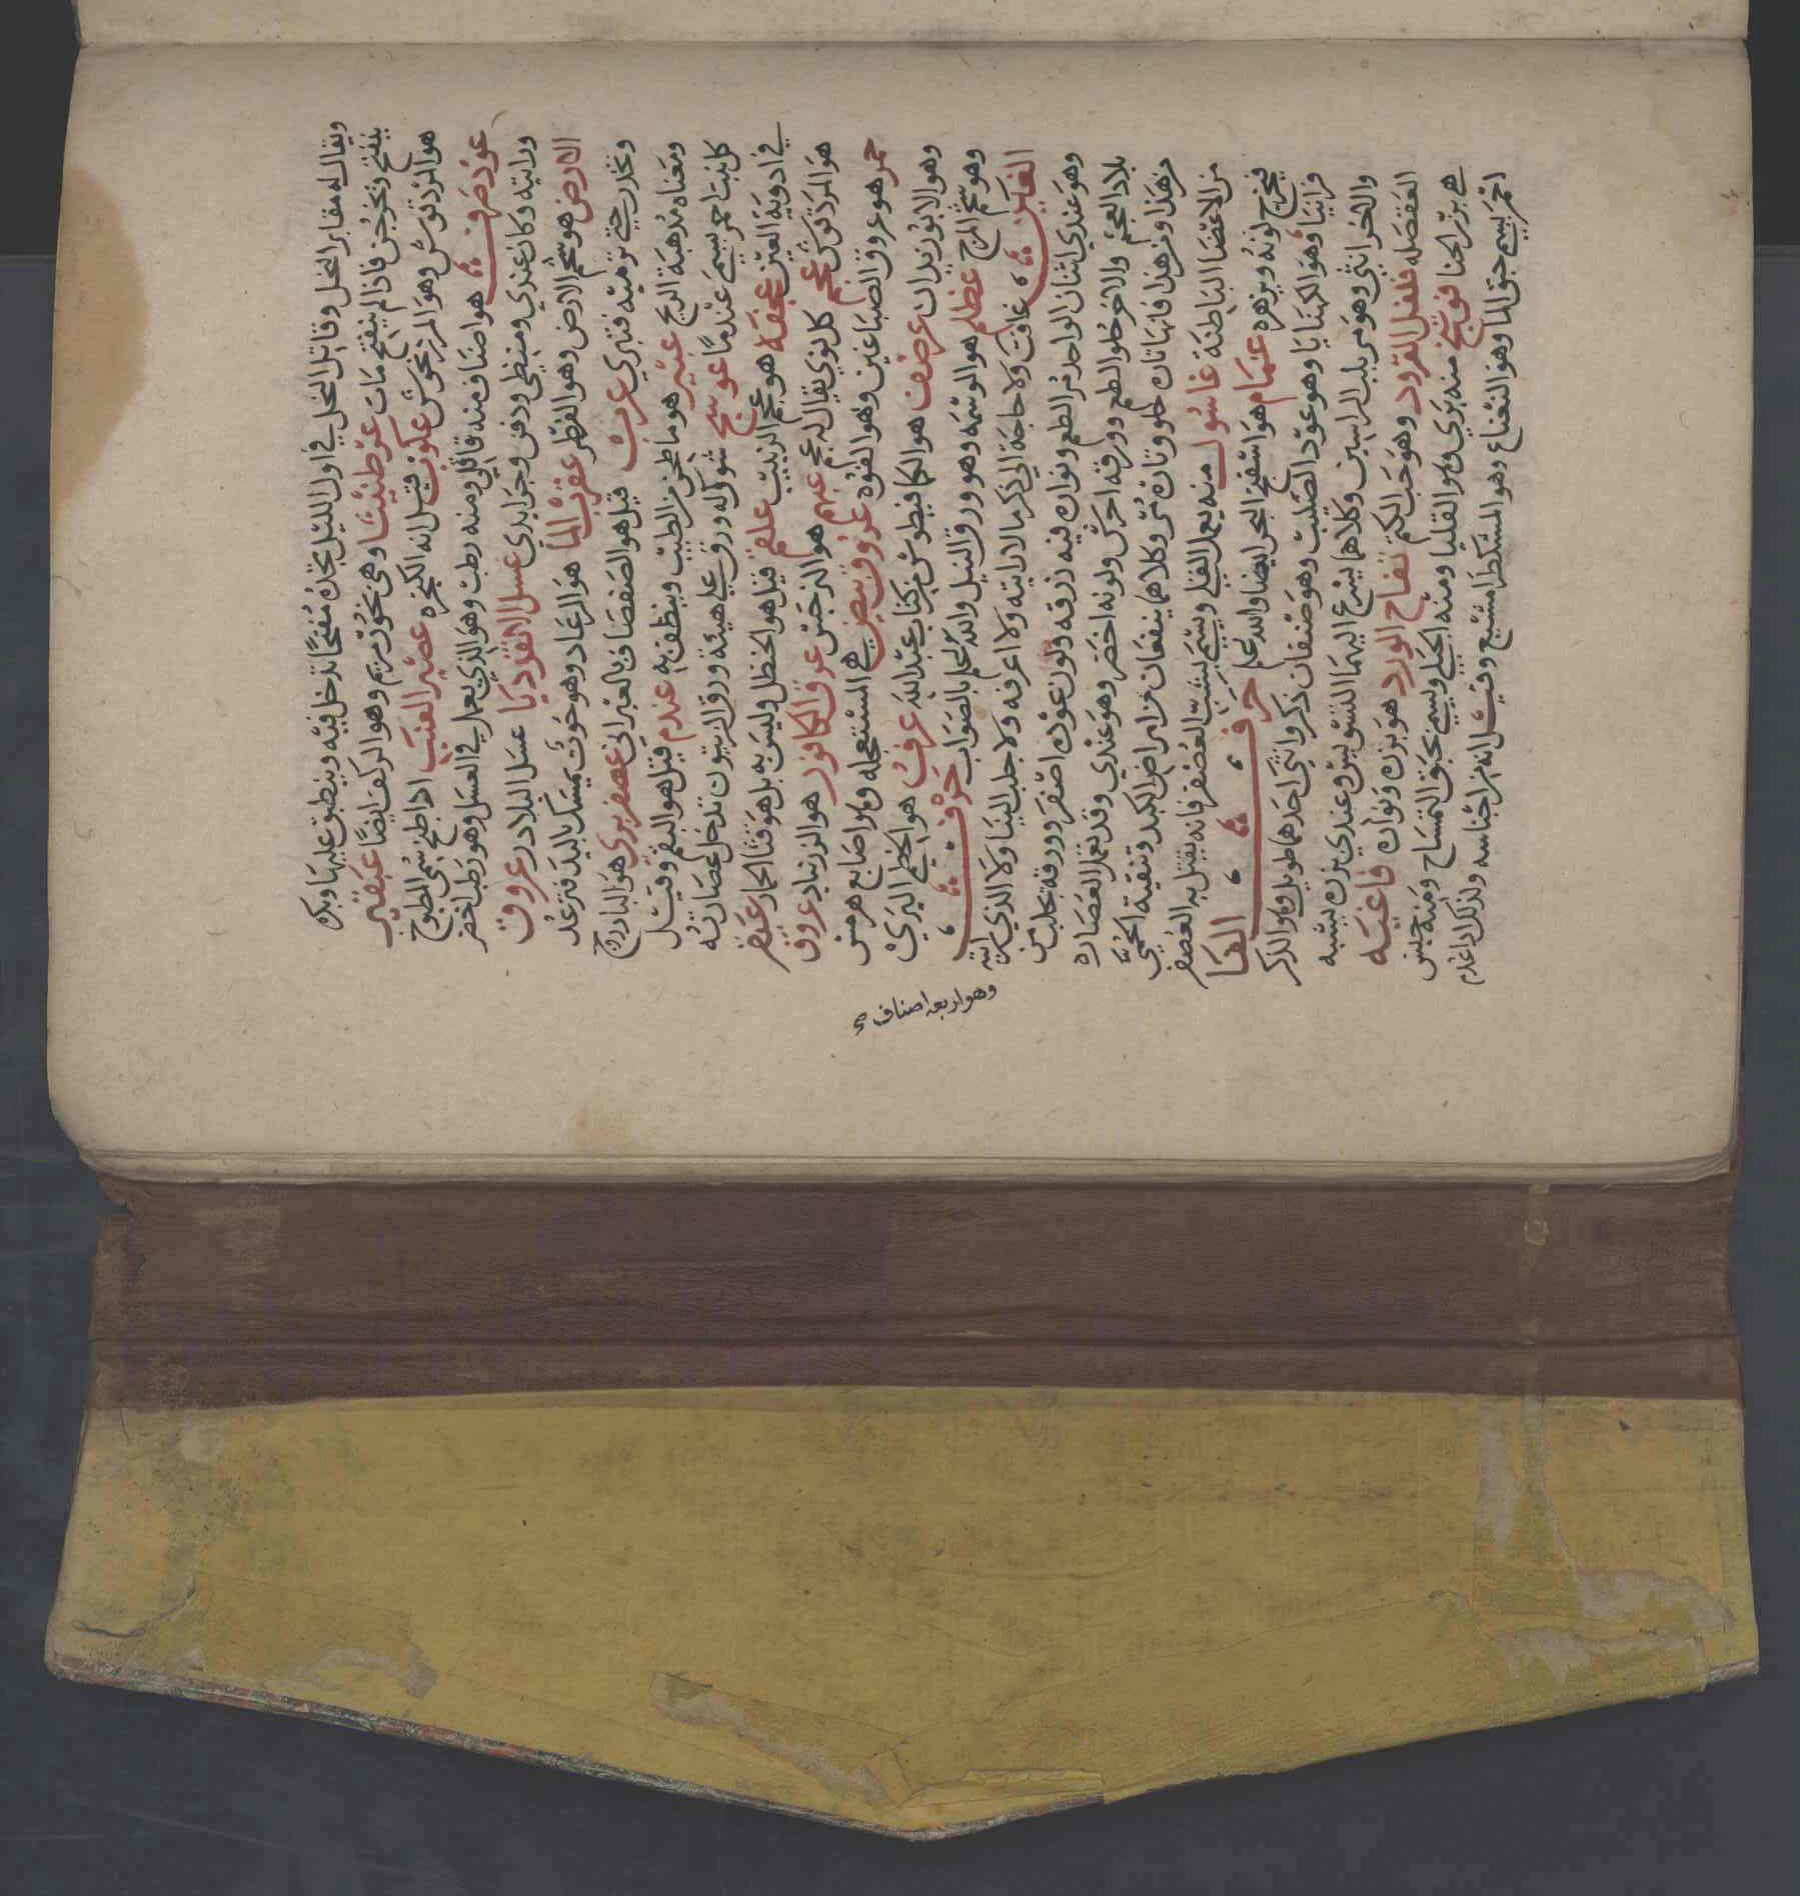 ويقال له مقابر النحل وقاتل النحل في اول الليل تجده مفتحا تدخل فيه وينطبق عليها وبكره
يفتح وتخرج فاذا لم ينفتح مات عرطنيثا وهي بخور مريم وهو الركف ايضا عبقير
هو المرزتوش وهو المرزنجوش عكوب قيل انه الكنجره عصير العنب اذا طبخ سمي المطبوخ
عود صرف هو اصناف منه قاقلي ومنه رطب وهو الذي يعمل في العسل وهو رطب اخضر
ورايته وكان عندي ومنيطي ودفن وجرابدي عسل الانقرديا عسل البلادر عروق
الارض هو شحم الارض وهو الفطر عقرب الما هو الرعاد وهو حوت يمسك باليد فترعد
وتخدر حتى ترميه فتبري عرب قيل هو الصفصاف بالعبراني عصفر بري هو الباذرنج
ومعناه مذهبة الريح عبير هو ما طحن من الطيب وينظف به عندم قيل هو البقم وقيل
كل نبت احمر يسمى عندما عوسج شوك له ورق على هيئة ورق الزيتون تدخل عصارته
في ادوية العين عجفه هو عجم الزبيب علقم قيل هو الحنظل وليس به بل هو قثا الحمار عنقر
هو المردتوش عجم كل نوي يقال له عجم عبهر هو النرجس عرق الكافور هو الزرنباد عروق
حمر هو عروق الصباغين وهو الفوه عروق بيض هي المستعجله وهو اصابع هرمس
وهو الابوزيدان عرصف هو الكمافيطوس من كتاب عبد الله عرف هو الخطمي البري
وهو شحم المرج عظلم هو الوسمه وهو ورق النيل والله اعلم بالصواب حرف
الغين غافت ولا حاجة الى ذكر ما لا رايته ولا اعرفه ولا جلب الينا ولا الذي رايته
وهو اربعه اصناف صح
وهو عندي اثنان الواحد مر الطعم ونواره فيه زرقه ولون عوده اصفر وورقه تجلب من
بلاد العجم والاخر حلو الطعم وورقه احرش ولونه اخضر وهو عندي وقد تعمل العصاره
من هذا ومن هذا فانها تاره حلوه وتاره مر وكلاهما ينفعان من امراض الكبد وتنقية الحمى
من الاعضا الباطنة غاسول منه يعمل القلي ويسمى بشب العصفر فانه يقتل به العصفر
فيخرج لونه ويزهره غمام هو اسفنج البحر ايضا والله اعلم حرف الفا
فرانيا وهو الكهنايا وهو عود الصليب وهو صنفان ذكر وانثى احدهما طويل وهو الذكر
والاخر انثى وهو مربلب الراسين وكلاهما ينزع اليهما اللسن وعندي بزره يشبه
العقصله فلفل القرود وهو حب الكتم تفاح الورد هو بزره ونواره فاغيه
هي بزر الحنا فوتنج منه بري وهو القليا ومنه الجبلي ويسمى بحبق التمساح ومنه جنس
اخر يسمى حبق الما وهو النعناع وهو المشكطرا مشيع وقيل انه من اجناسه ولذلك اذا عدم